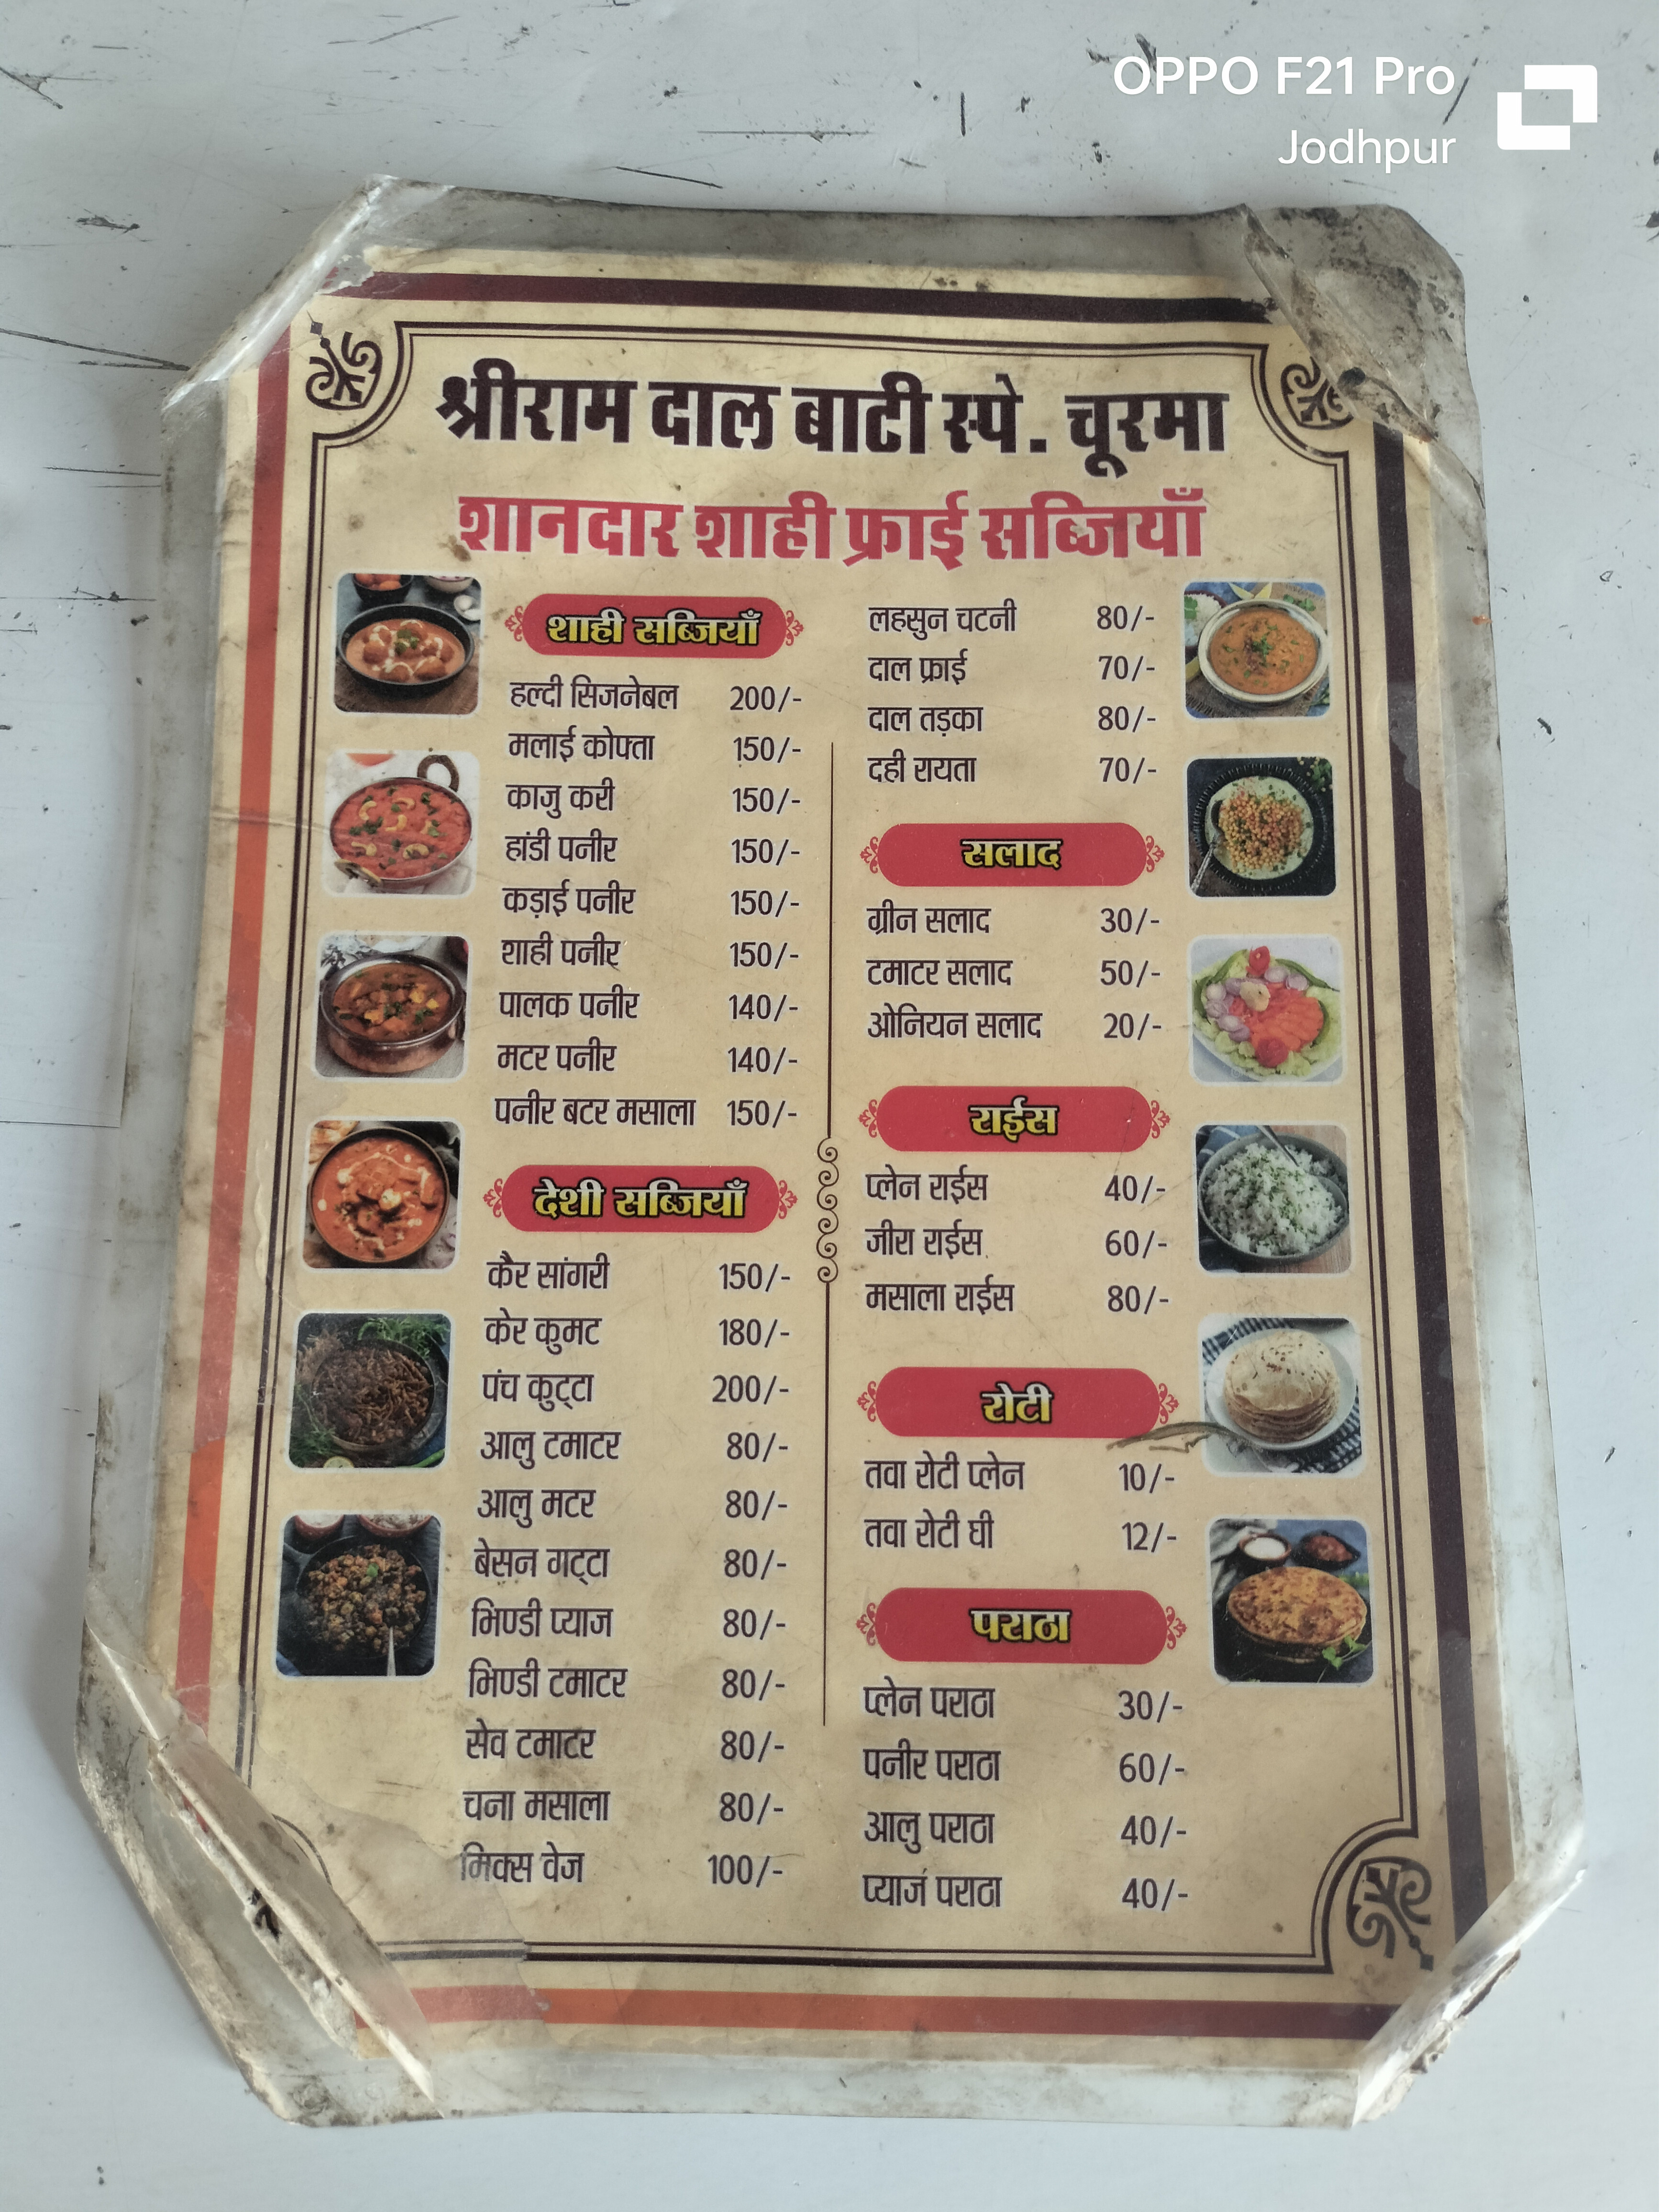 OPPO F21 Pro
Jodhpur
श्रीराम दाल बाटी स्पे. चूरमा
शानदार शाही फ्राई सब्जियाँ
शाही सब्जियाँ
हल्दी सिजनेबल 200/-
मलाई कोफ्ता 150/-
काजु करी 150/-
हांडी पनीर 150/-
कड़ाई पनीर 150/-
शाही पनीर 150/-
पालक पनीर 140/-
मटर पनीर 140/-
पनीर बटर मसाला 150/-
देशी सब्जियाँ
कैर सांगरी 150/-
केर कुमट 180/-
पंच कुट्टा 200/-
आलु टमाटर 80/-
आलु मटर 80/-
बेसन गट्टा 80/-
भिण्डी प्याज 80/-
भिण्डी टमाटर 80/-
सेव टमाटर 80/-
चना मसाला 80/-
मिक्स वेज 100/-
लहसुन चटनी 80/-
दाल फ्राई 70/-
दाल तड़का 80/-
दही रायता 70/-
सलाद
ग्रीन सलाद 30/-
टमाटर सलाद 50/-
ओनियन सलाद 20/-
राईस
प्लेन राईस 40/-
जीरा राईस 60/-
मसाला राईस 80/-
रोटी
तवा रोटी प्लेन 10/-
तवा रोटी घी 12/-
पराठा
प्लेन पराठा 30/-
पनीर पराठा 60/-
आलु पराठा 40/-
प्याज पराठा 40/-